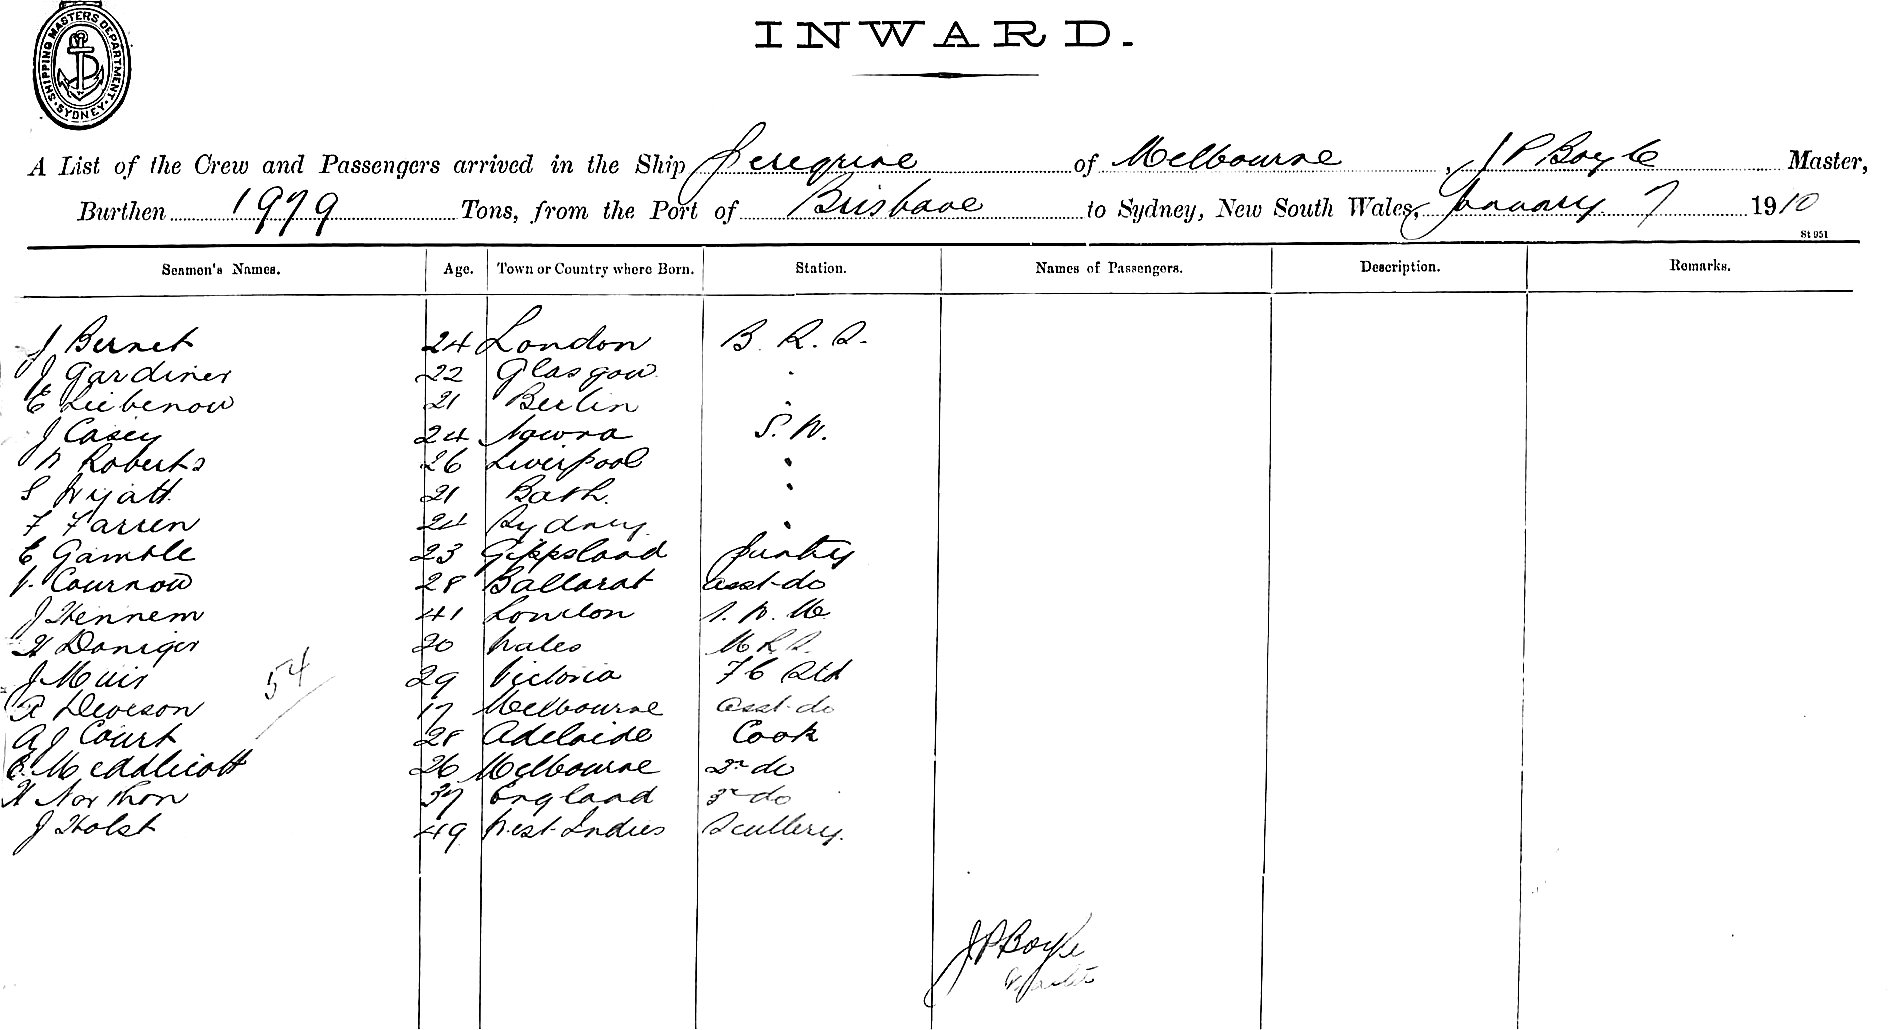 SHIPPING MASTERS DEPARTMENT. SYDNEY
INWARD.
A List of the Crew and Passengers arrived in the Ship Peregrine of Melbourne, J P Boyle Master,
Burthen 1979 Tons, from the Port of Brisbane to Sydney, New South Wales, January 7 1910
St 951
Seamen's Names. Age. Town or Country where Born. Station. Names of Passengers. Description. Remarks.
J Bernet 24 London B. R. S.
J Gardiner 22 Glasgow "
E Liebenow 21 Berlin "
J Casey 24 Nowra S. W.
W Roberts 26 Liverpool "
S Wyatt 21 Bath. "
F Farren 24 Sydney "
E Gamble 23 Gippsland Pantry
V. Cournow 28 Ballarat asst do
J Hennem 41 London
H Doniger 20 Wales M R S.
J Muir 29 Victoria F C Std
54
R Deveson 17 Melbourne asst do
A J Court 28 Adelaide Cook
E. Meddlicott 26 Melbourne 2nd do
H Northon 37 England 3rd do
J Holst 49 West Indies Scullery.
J P Boyle
Master